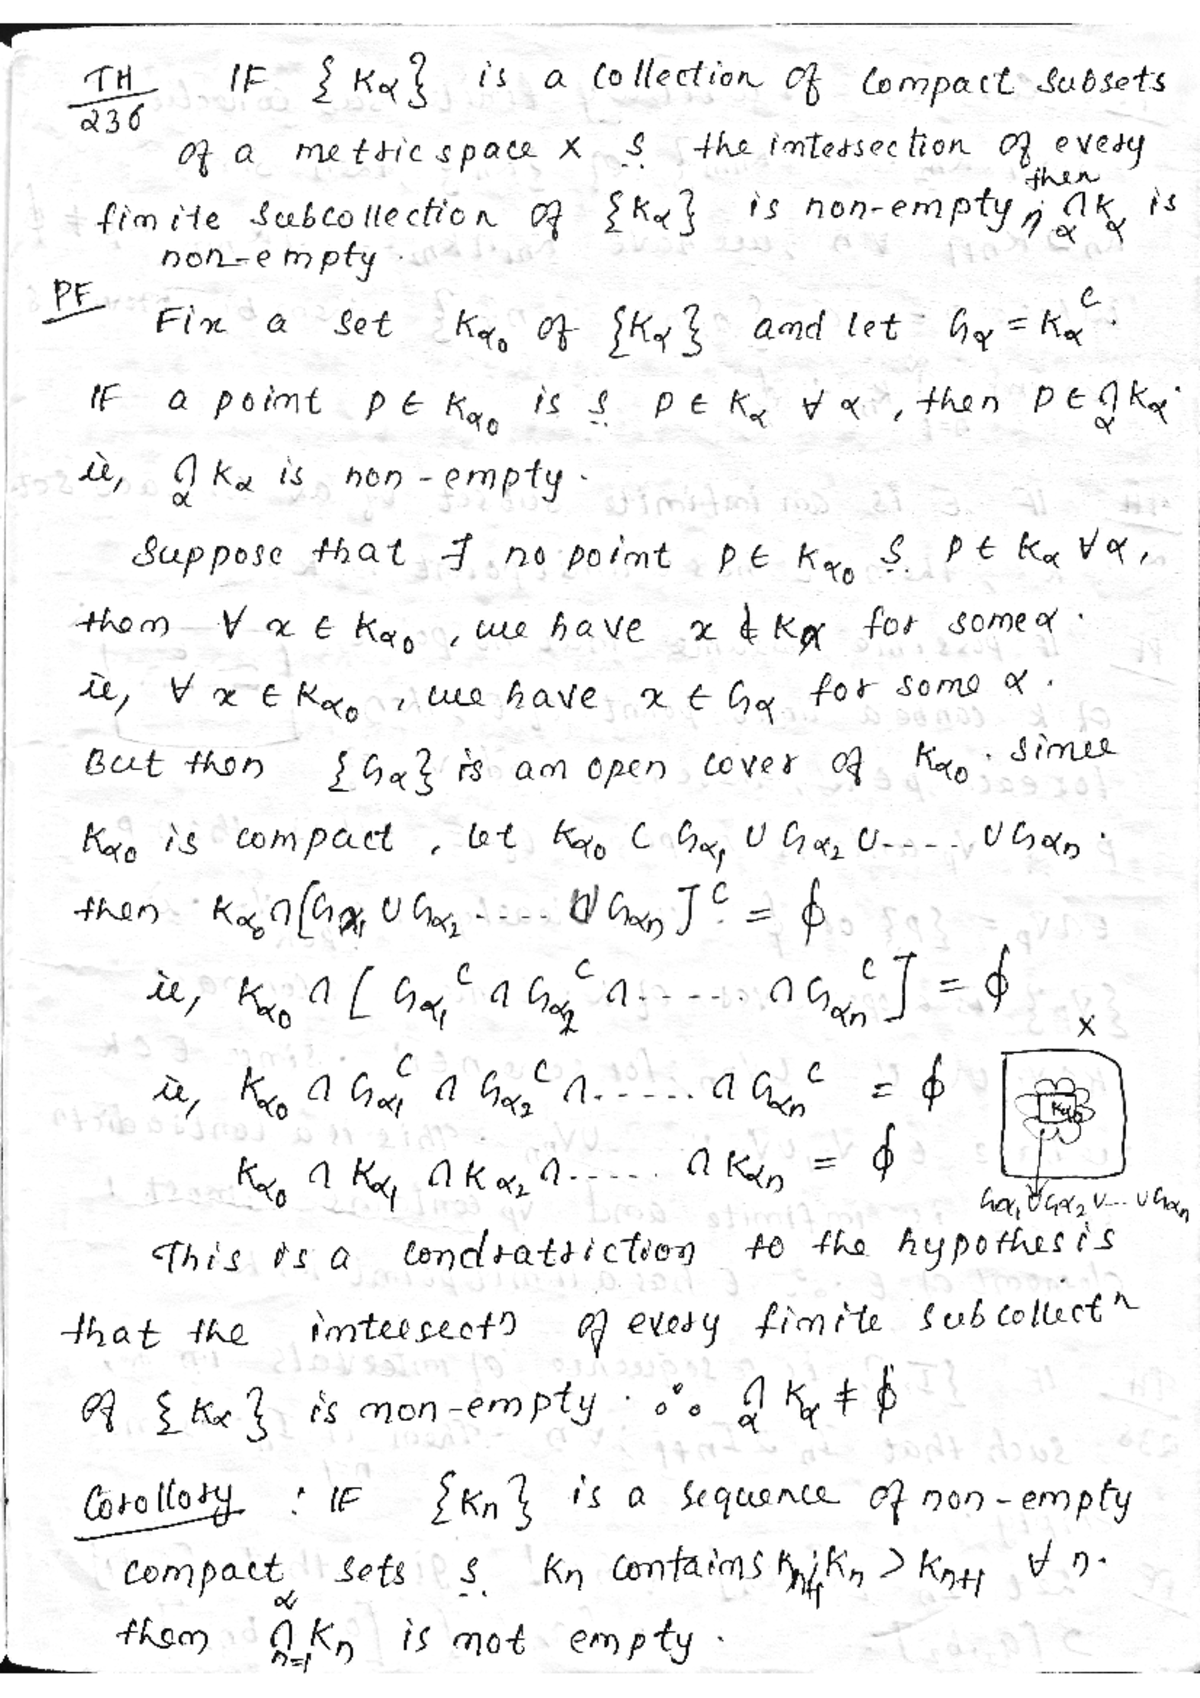 TH/236 IF {Kα} is a collection of compact subsets
of a metric space X ṣ the intersection of every
finite subcollection of {Kα} is non-empty, then ∩α Kα is
non-empty.
PF Fix a set Kα₀ of {Kα} and let Gα = Kα^c.
IF a point p ∈ Kα₀ is ṣ p ∈ Kα ∀ α, then p ∈ ∩α Kα.
ie, ∩α Kα is non-empty.
Suppose that ∃ no point p ∈ Kα₀ ṣ. p ∈ Kα ∀ α,
then ∀ x ∈ Kα₀, we have x ∉ Kα for some α.
ie, ∀ x ∈ Kα₀, we have x ∈ Gα for some α.
But then {Gα} is an open cover of Kα₀. Since
Kα₀ is compact, let Kα₀ ⊂ Gα₁ ∪ Gα₂ ∪ ..... ∪ Gαn.
then Kα₀ ∩ [Gα₁ ∪ Gα₂ ..... ∪ Gαn]^c = ϕ
ie, Kα₀ ∩ [Gα₁^c ∩ Gα₂^c ∩ ...... ∩ Gαn^c] = ϕ
X
ie, Kα₀ ∩ Gα₁^c ∩ Gα₂^c ∩ ...... ∩ Gαn^c = ϕ
Kα₀
Kα₀ ∩ Kα₁ ∩ Kα₂ ∩ ...... ∩ Kαn = ϕ
Gα₁ ∪ Gα₂ ∪ ... ∪ Gαn
This is a condratriction to the hypothesis
that the intersectn of every finite subcollectn
of {Kα} is non-empty. ∴ ∩α Kα ≠ ϕ
Corollory : IF {Kn} is a sequence of non-empty
compact sets ṣ. Kn contains Kn+1; Kn ⊃ Kn+1 ∀ n.
then ∩_{n=1}^{α} Kn is not empty.